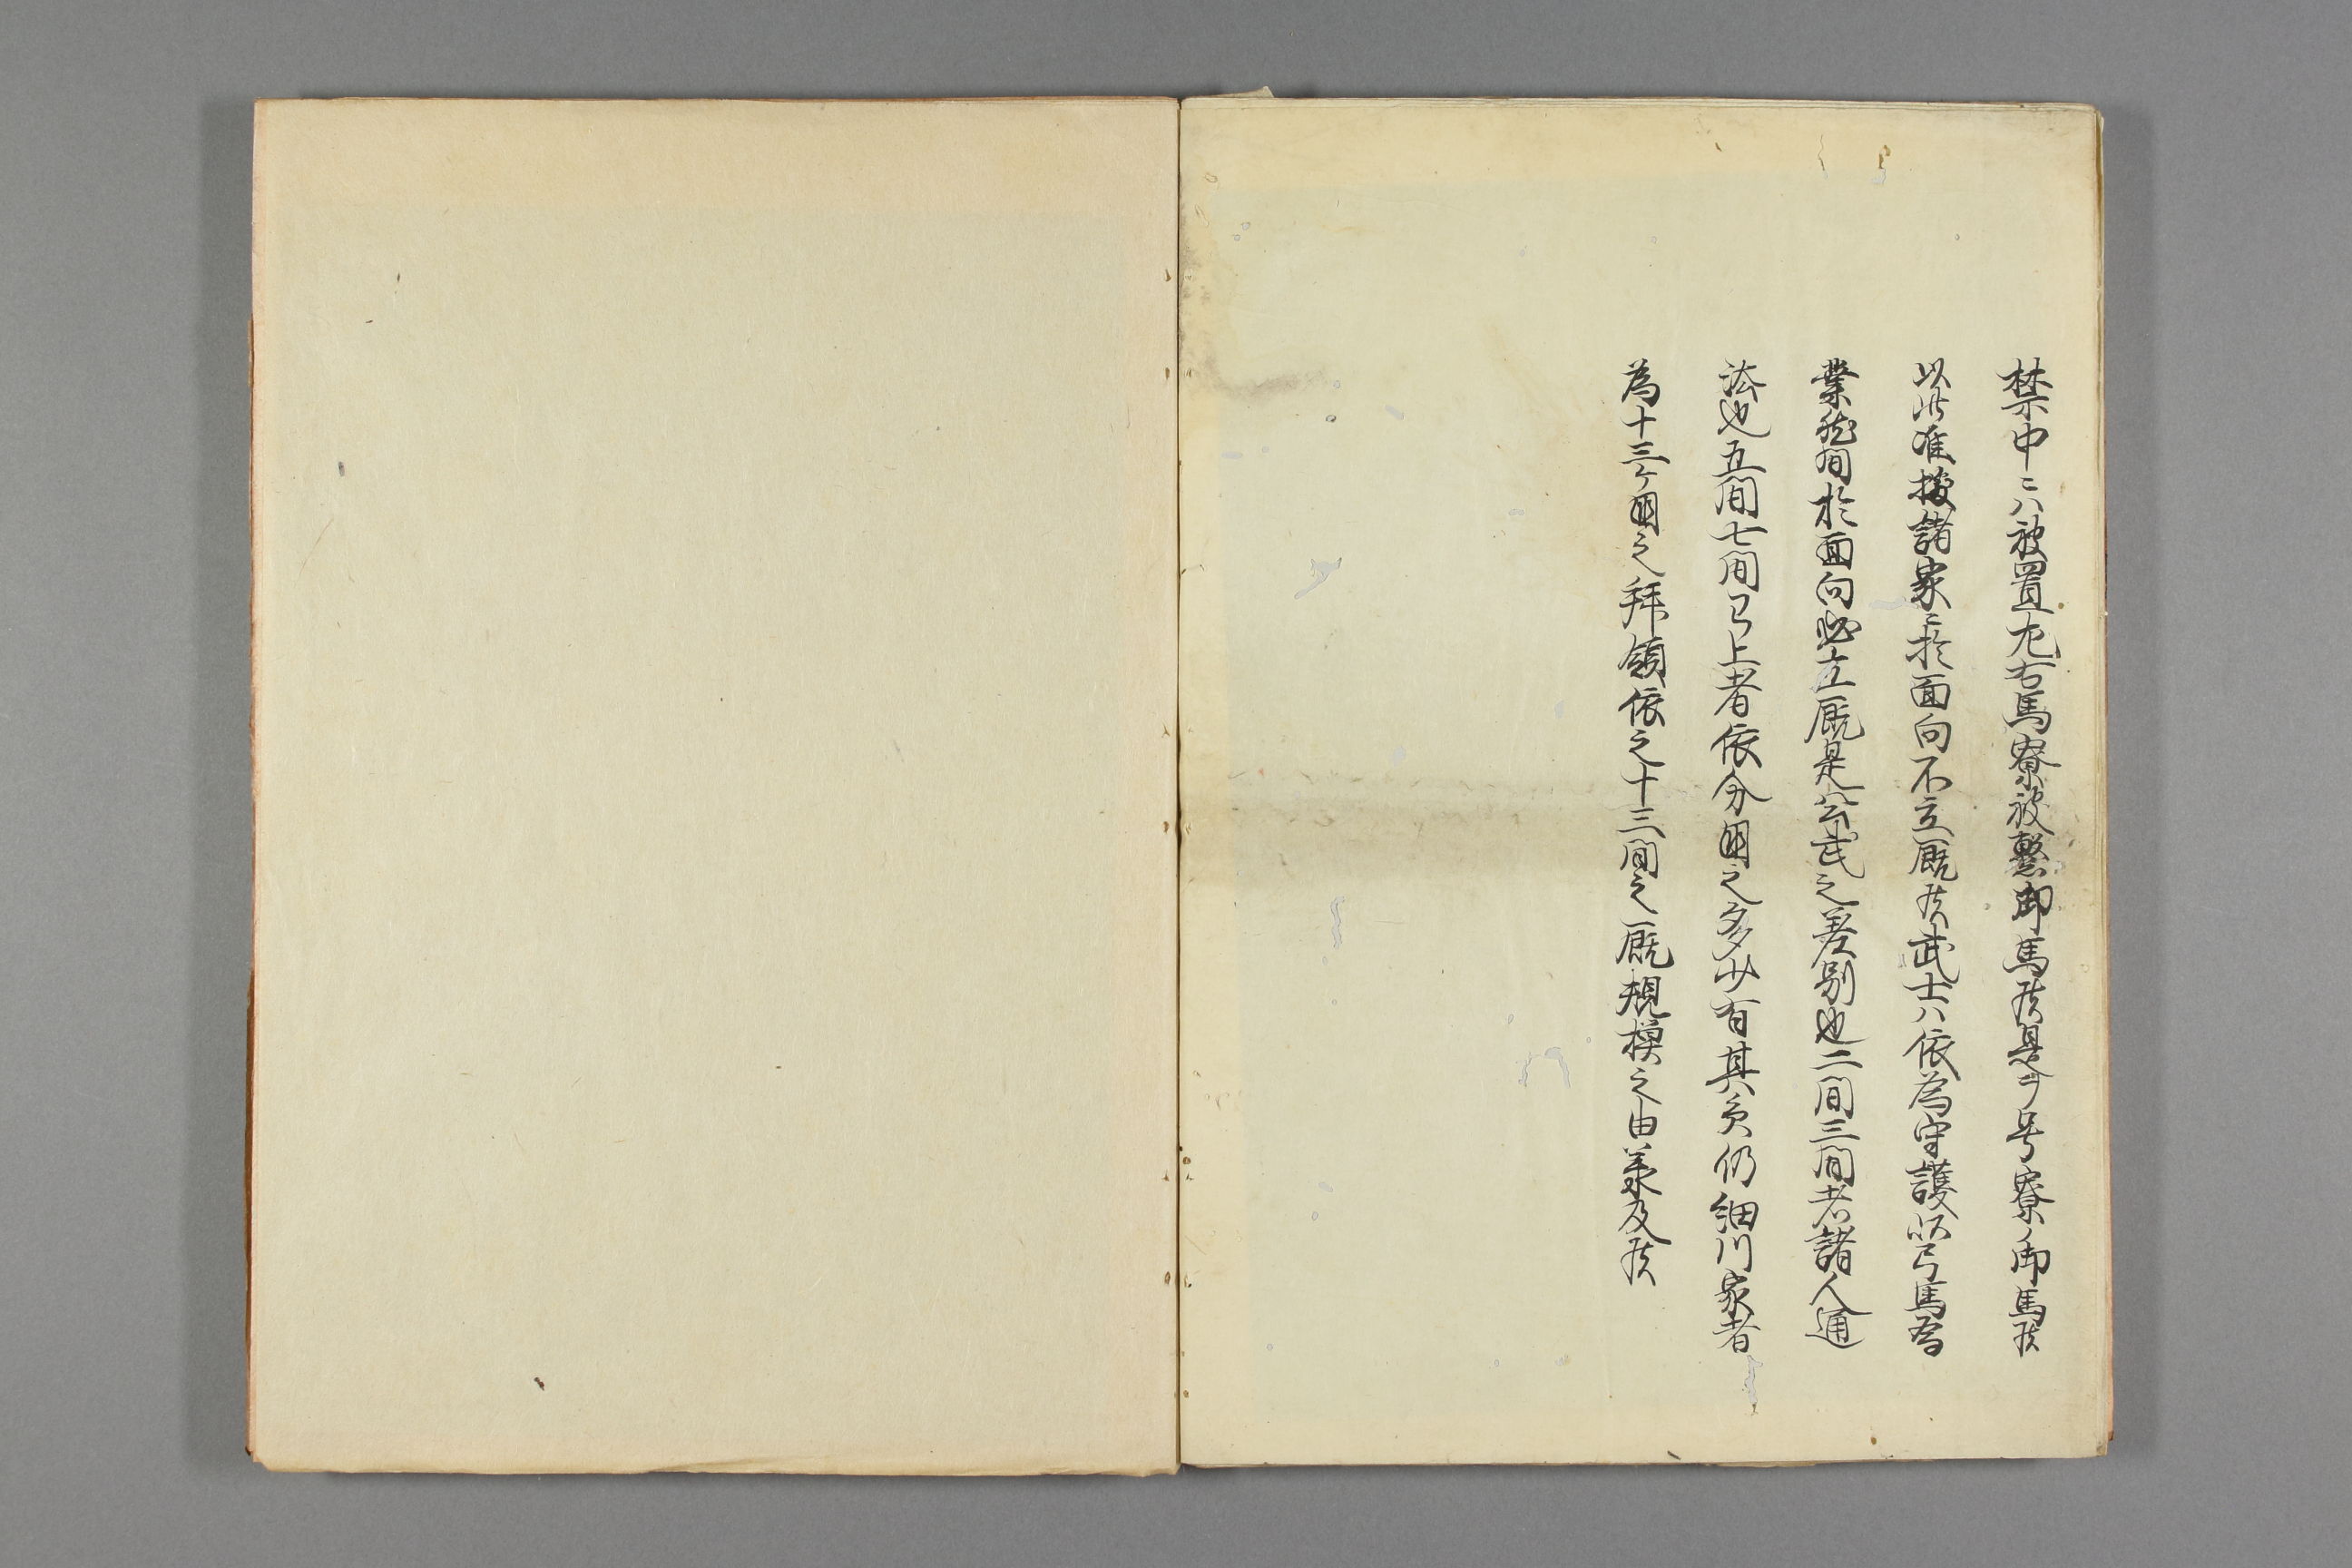 禁中ニハ被置左右馬寮被繫御馬候是ヲ号寮ノ御馬候
以此准據諸家ニ於面向不立厩候武士ハ依為守護以弓馬為
業然間於面向必立厩是公武之差別也二間三間者諸人通
法也五間七間已上者依分国之多少有其員仍細川家者
為十三ケ国之拜領依之十三間之厩規模之由羕及候